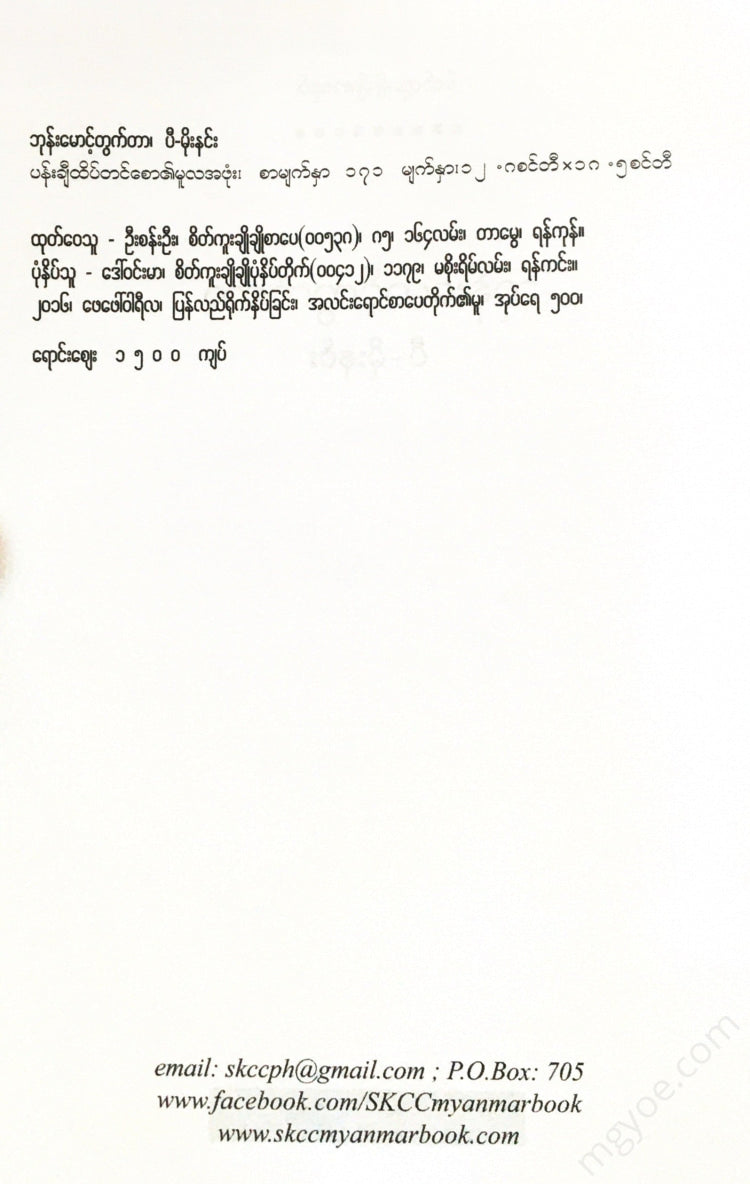 ဘုန်းမောင့်တွက်တာ၊ ပီ-မိုးနင်း
ပန်းချီထိပ်တင်စော၏မူလအဖုံး၊ စာမျက်နှာ ၁၇၁ မျက်နှာ၊၁၂ .ဂစင်တီ×၁ဂ .၅စင်တီ
ထုတ်ဝေသူ - ဦးစန်းဦး၊ စိတ်ကူးချိုချိုစာပေ(ဝဝ၅၃ဂ)၊ ဂ၅၊ ၁၆၄လမ်း၊ တာမွေ၊ ရန်ကုန်။
ပုံနှိပ်သူ - ဒေါ်ဝင်းမာ၊ စိတ်ကူးချိုချိုပုံနှိပ်တိုက်(ဝဝ၄၁၂)၊ ၁၁၇၉၊ မစိုးရိမ်လမ်း၊ ရန်ကင်း။
၂၀၁၆၊ ဖေဖော်ဝါရီလ၊ ပြန်လည်ရိုက်နှိပ်ခြင်း၊ အလင်းရောင်စာပေတိုက်၏မူ၊ အုပ်ရေ ၅၀၀၊
ရောင်းဈေး ၁ ၅ ၀ ၀ ကျပ်
email: skccph@gmail.com ; P.O.Box: 705
www.facebook.com/SKCCmyanmarbook
www.skccmyanmarbook.com
mgyoe.com